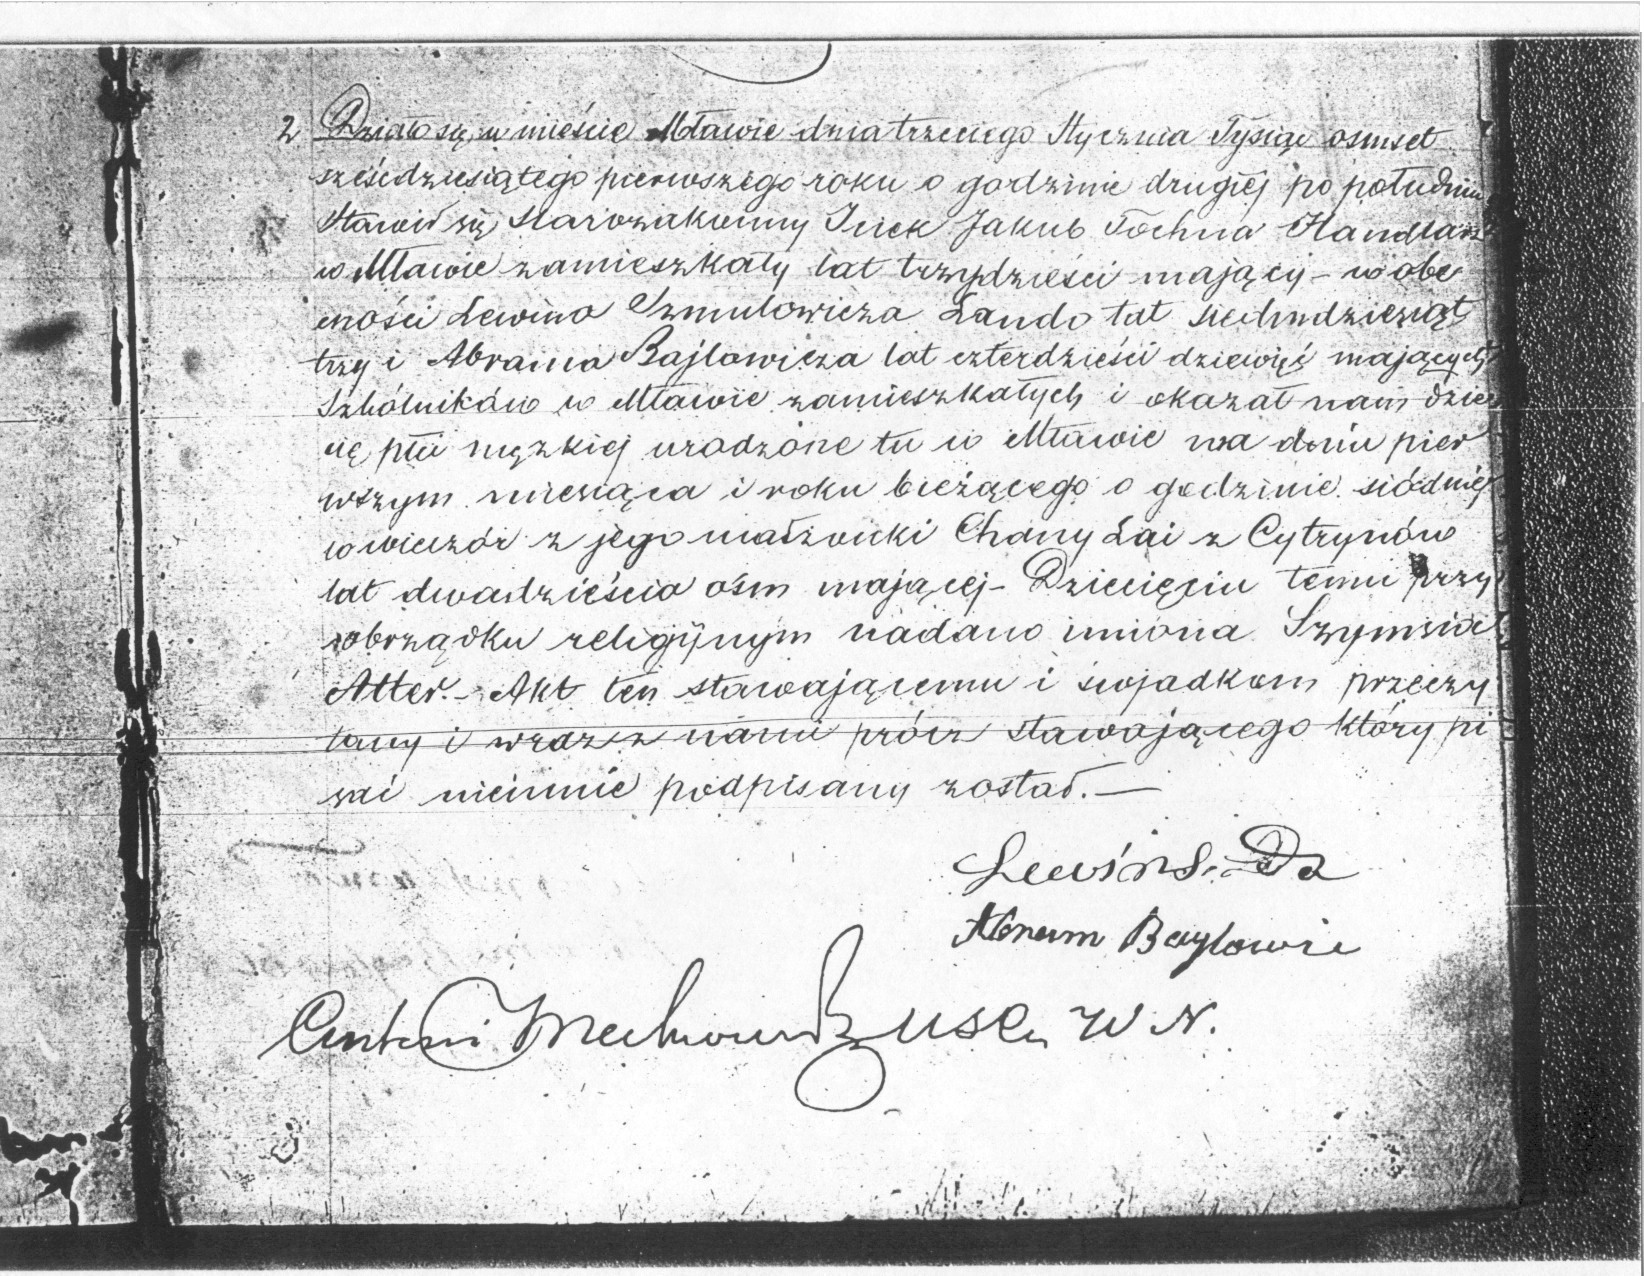 2 Działo się w mieście Mławie dnia trzeciego Stycznia Tysiąc osmset
sześćdziesiątego pierwszego roku o godzinie drugiej po południu
Stawił się Starozakonny Icek Jakub Tochna Handlarz
w Mławie zamieszkały lat trzydzieści mający – w obe
cności Lewina Szmulowicza Lando lat siedmdziesiąt
trzy i Abrama Bajlowicza lat czterdzieści dziewięć mających
Szkólników w Mławie zamieszkałych i okazał nam dzie
cię płci męzkiej urodzone tu w Mławie na dniu pier
wszym miesiąca i roku bieżącego o godzinie siódmej
wieczór z jego małżonki Chany Łai z Cytrynów
lat dwadzieścia ośm mającej – Dziecięciu temu przy
obrządku religijnym nadano imiona Szymsia
Alter. – Akt ten stawającemu i świadkom przeczy
tany i wraz z nami prócz stawającego który pi
sać nieumie podpisany został. —
Lewin S.
Abram Baylowic
Antoni W N.